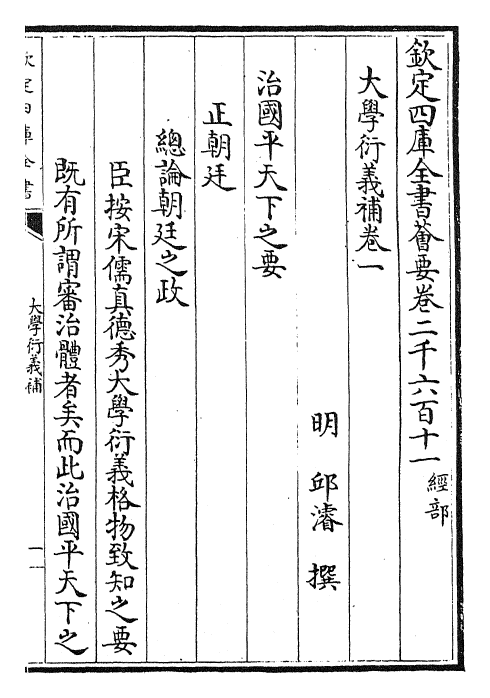 欽定四庫全書薈要卷二千六百十一 經部
大學衍義補卷一
明 邱濬 撰
治國平天下之要
正朝廷
總論朝廷之政
臣按宋儒真德秀大學衍義格物致知之要
既有所謂審治體者矣而此治國平天下之
欽定四庫全書
大學衍義補
一